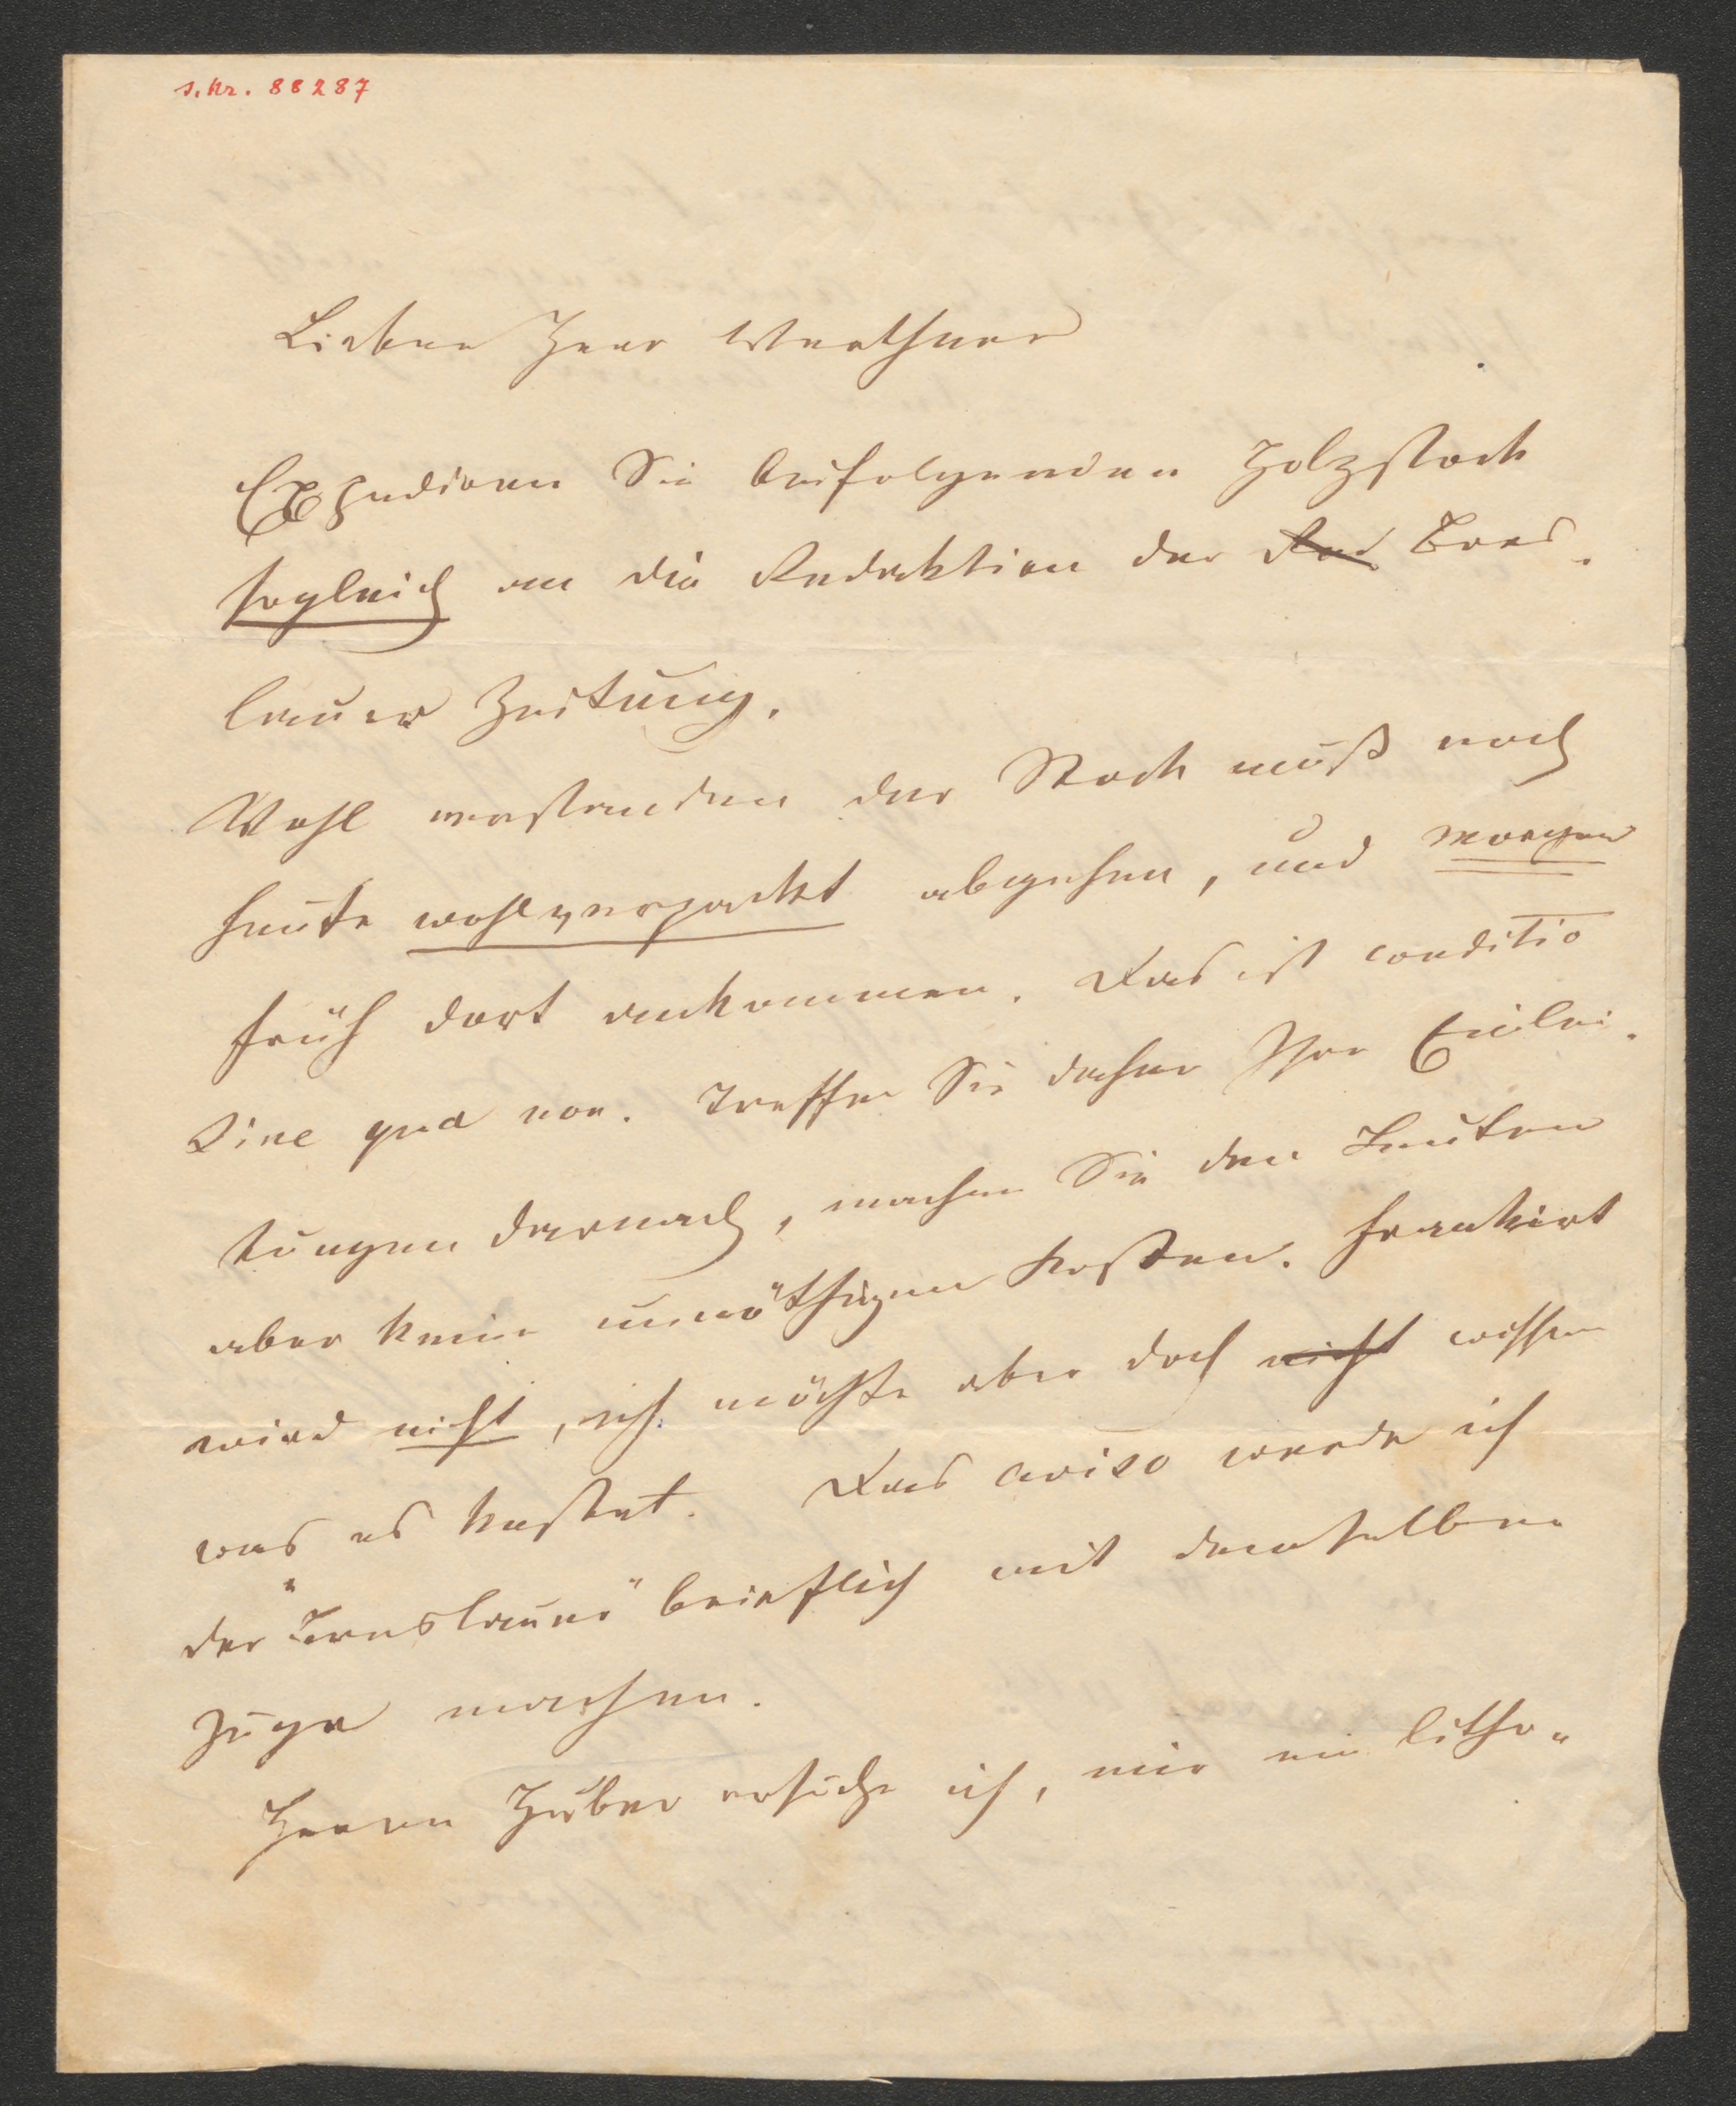 s. Nr. 88287
Lieber Herr Werthner
Expediren Sie beifolgenden Holzstock
sogleich an die Redaktion der Red Bres-
lauer Zeitung.
Wohl verstanden der Stock muß noch
heute wohlverpackt abgehen, und morgen
früh dort ankommen. Das ist conditio
sine qua non. Treffen Sie daher Ihre Einlei-
tungen darnach, machen Sie den Leuten
aber keine unnöthigen Kosten. Frankirt
wird nicht, ich möchte aber doch nicht wissen
was es kostet. Das aviso werde ich
der "Breslauer" brieflich mit demselben
Zuge machen.
Herrn Huber ersuche ich, mir ein litho-